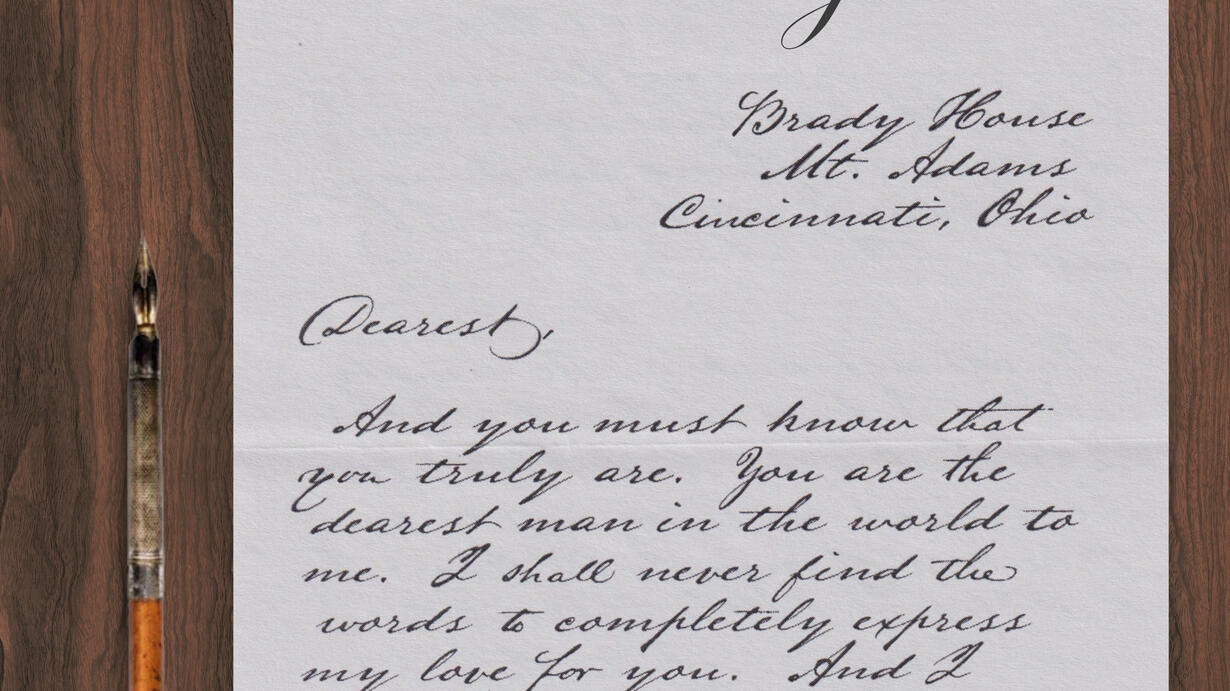 Brady House
Mt. Adams
Cincinnati, Ohio
Dearest,
And you must know that
you truly are. You are the
dearest man in the world to
me. I shall never find the
words to completely express
my love for you. And I